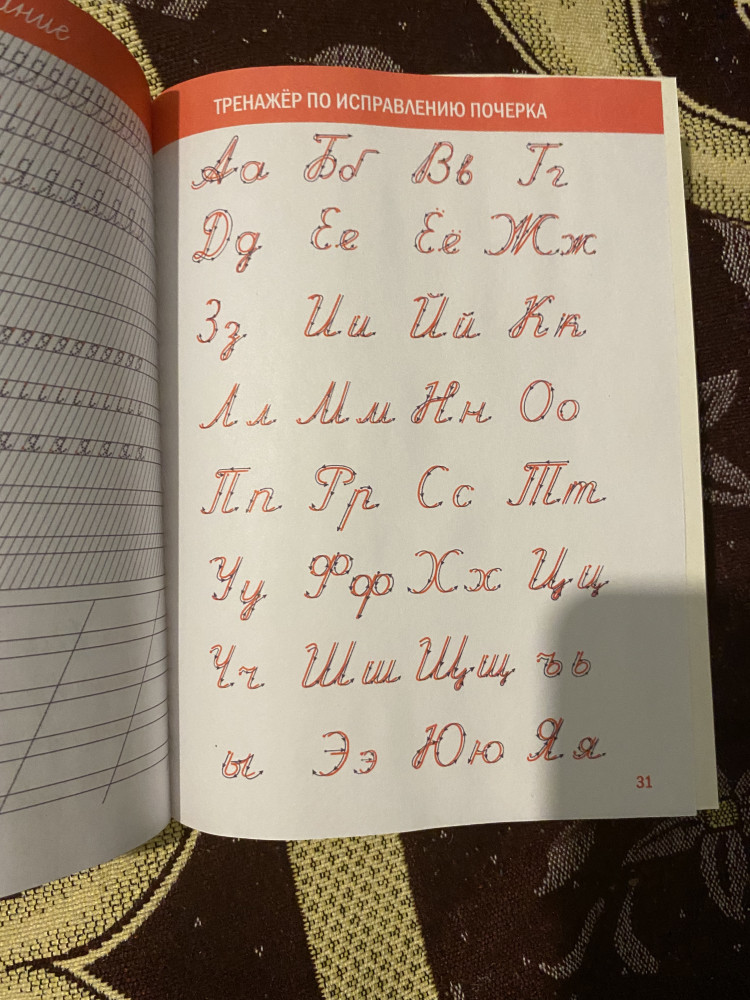 ТРЕНАЖЁР ПО ИСПРАВЛЕНИЮ ПОЧЕРКА
Аа Бб Вв Гг
Дд Ее Ёё Жж
Зз Ии Йй Кк
Лл Мм Нн Оо
Пп Рр Сс Тт
Уу Фф Хх Цц
Чч Шш Щщ ъь
ы Ээ Юю Яя
31